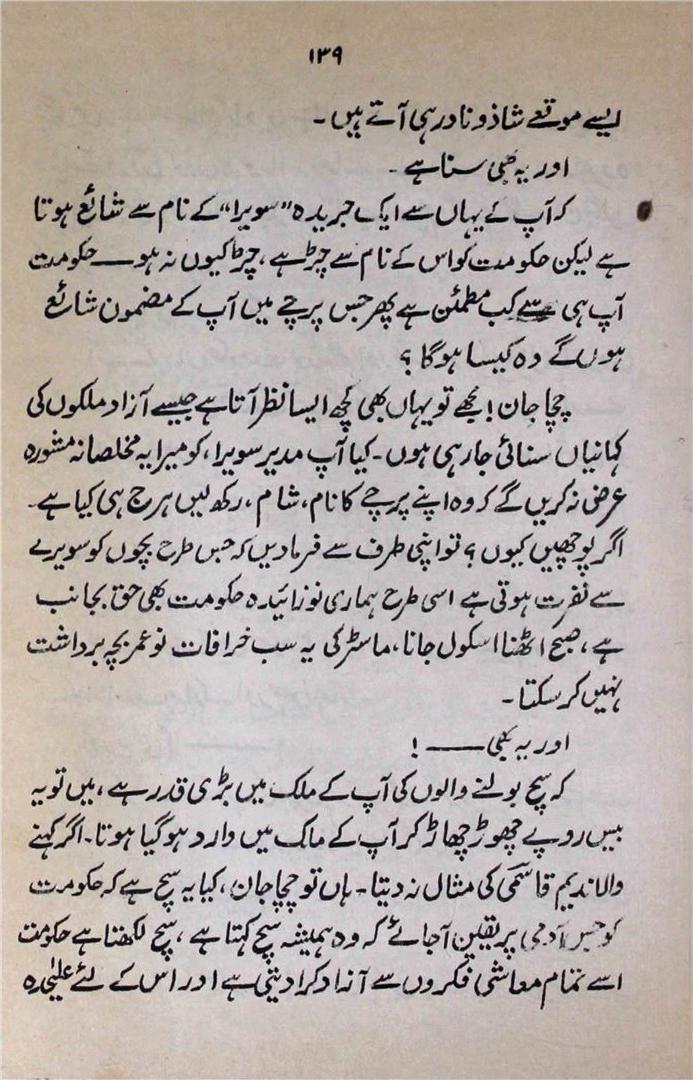 ۱۳۹
ایسے موقعے شاذ و نادر ہی آتے ہیں۔
اور یہ بھی سنا ہے۔
کہ آپ کے یہاں سے ایک جریدہ "سویرا" کے نام سے شائع ہوتا
ہے لیکن حکومت کو اس کے نام سے چڑ ہے، چڑ کیوں نہ ہو — حکومت
آپ ہی سے کب مطمئن ہے پھر جس پرچے میں آپ کے مضمون شائع
ہوں گے وہ کیسا ہوگا؟
چچا جان! مجھے تو یہاں بھی کچھ ایسا نظر آتا ہے جیسے آزاد ملکوں کی
کہانیاں سنائی جا رہی ہوں۔ کیا آپ مدیر سویرا، کو میرا یہ مخلصانہ مشورہ
عرض نہ کریں گے کہ وہ اپنے پرچے کا نام، شام، رکھ لیں ہرج ہی کیا ہے۔
اگر پوچھیں کیوں؟ تو اپنی طرف سے فرما دیں کہ جس طرح بچوں کو سویرے
سے نفرت ہوتی ہے اسی طرح ہماری نوزائیدہ حکومت بھی حق بجانب
ہے، صبح اٹھنا اسکول جانا، ماسٹر کی یہ سب خرافات نو عمر بچہ برداشت
نہیں کر سکتا۔
اور یہ بھی — !
کہ سچ بولنے والوں کی آپ کے ملک میں بڑی قدر ہے، میں تو یہ
بیس روپے چھوڑ چھاڑ کر آپ کے ملک میں وارد ہو گیا ہوتا۔ اگر کہنے
والا ندیم قاسمی کی مثال نہ دیتا۔ ہاں تو چچا جان، کیا یہ سچ ہے کہ حکومت
کو جس آدمی پر یقین آ جائے کہ وہ ہمیشہ سچ کہتا ہے، سچ لکھتا ہے حکومت
اسے تمام معاشی فکروں سے آزاد کرا دیتی ہے اور اس کے لئے علیٰحدہ